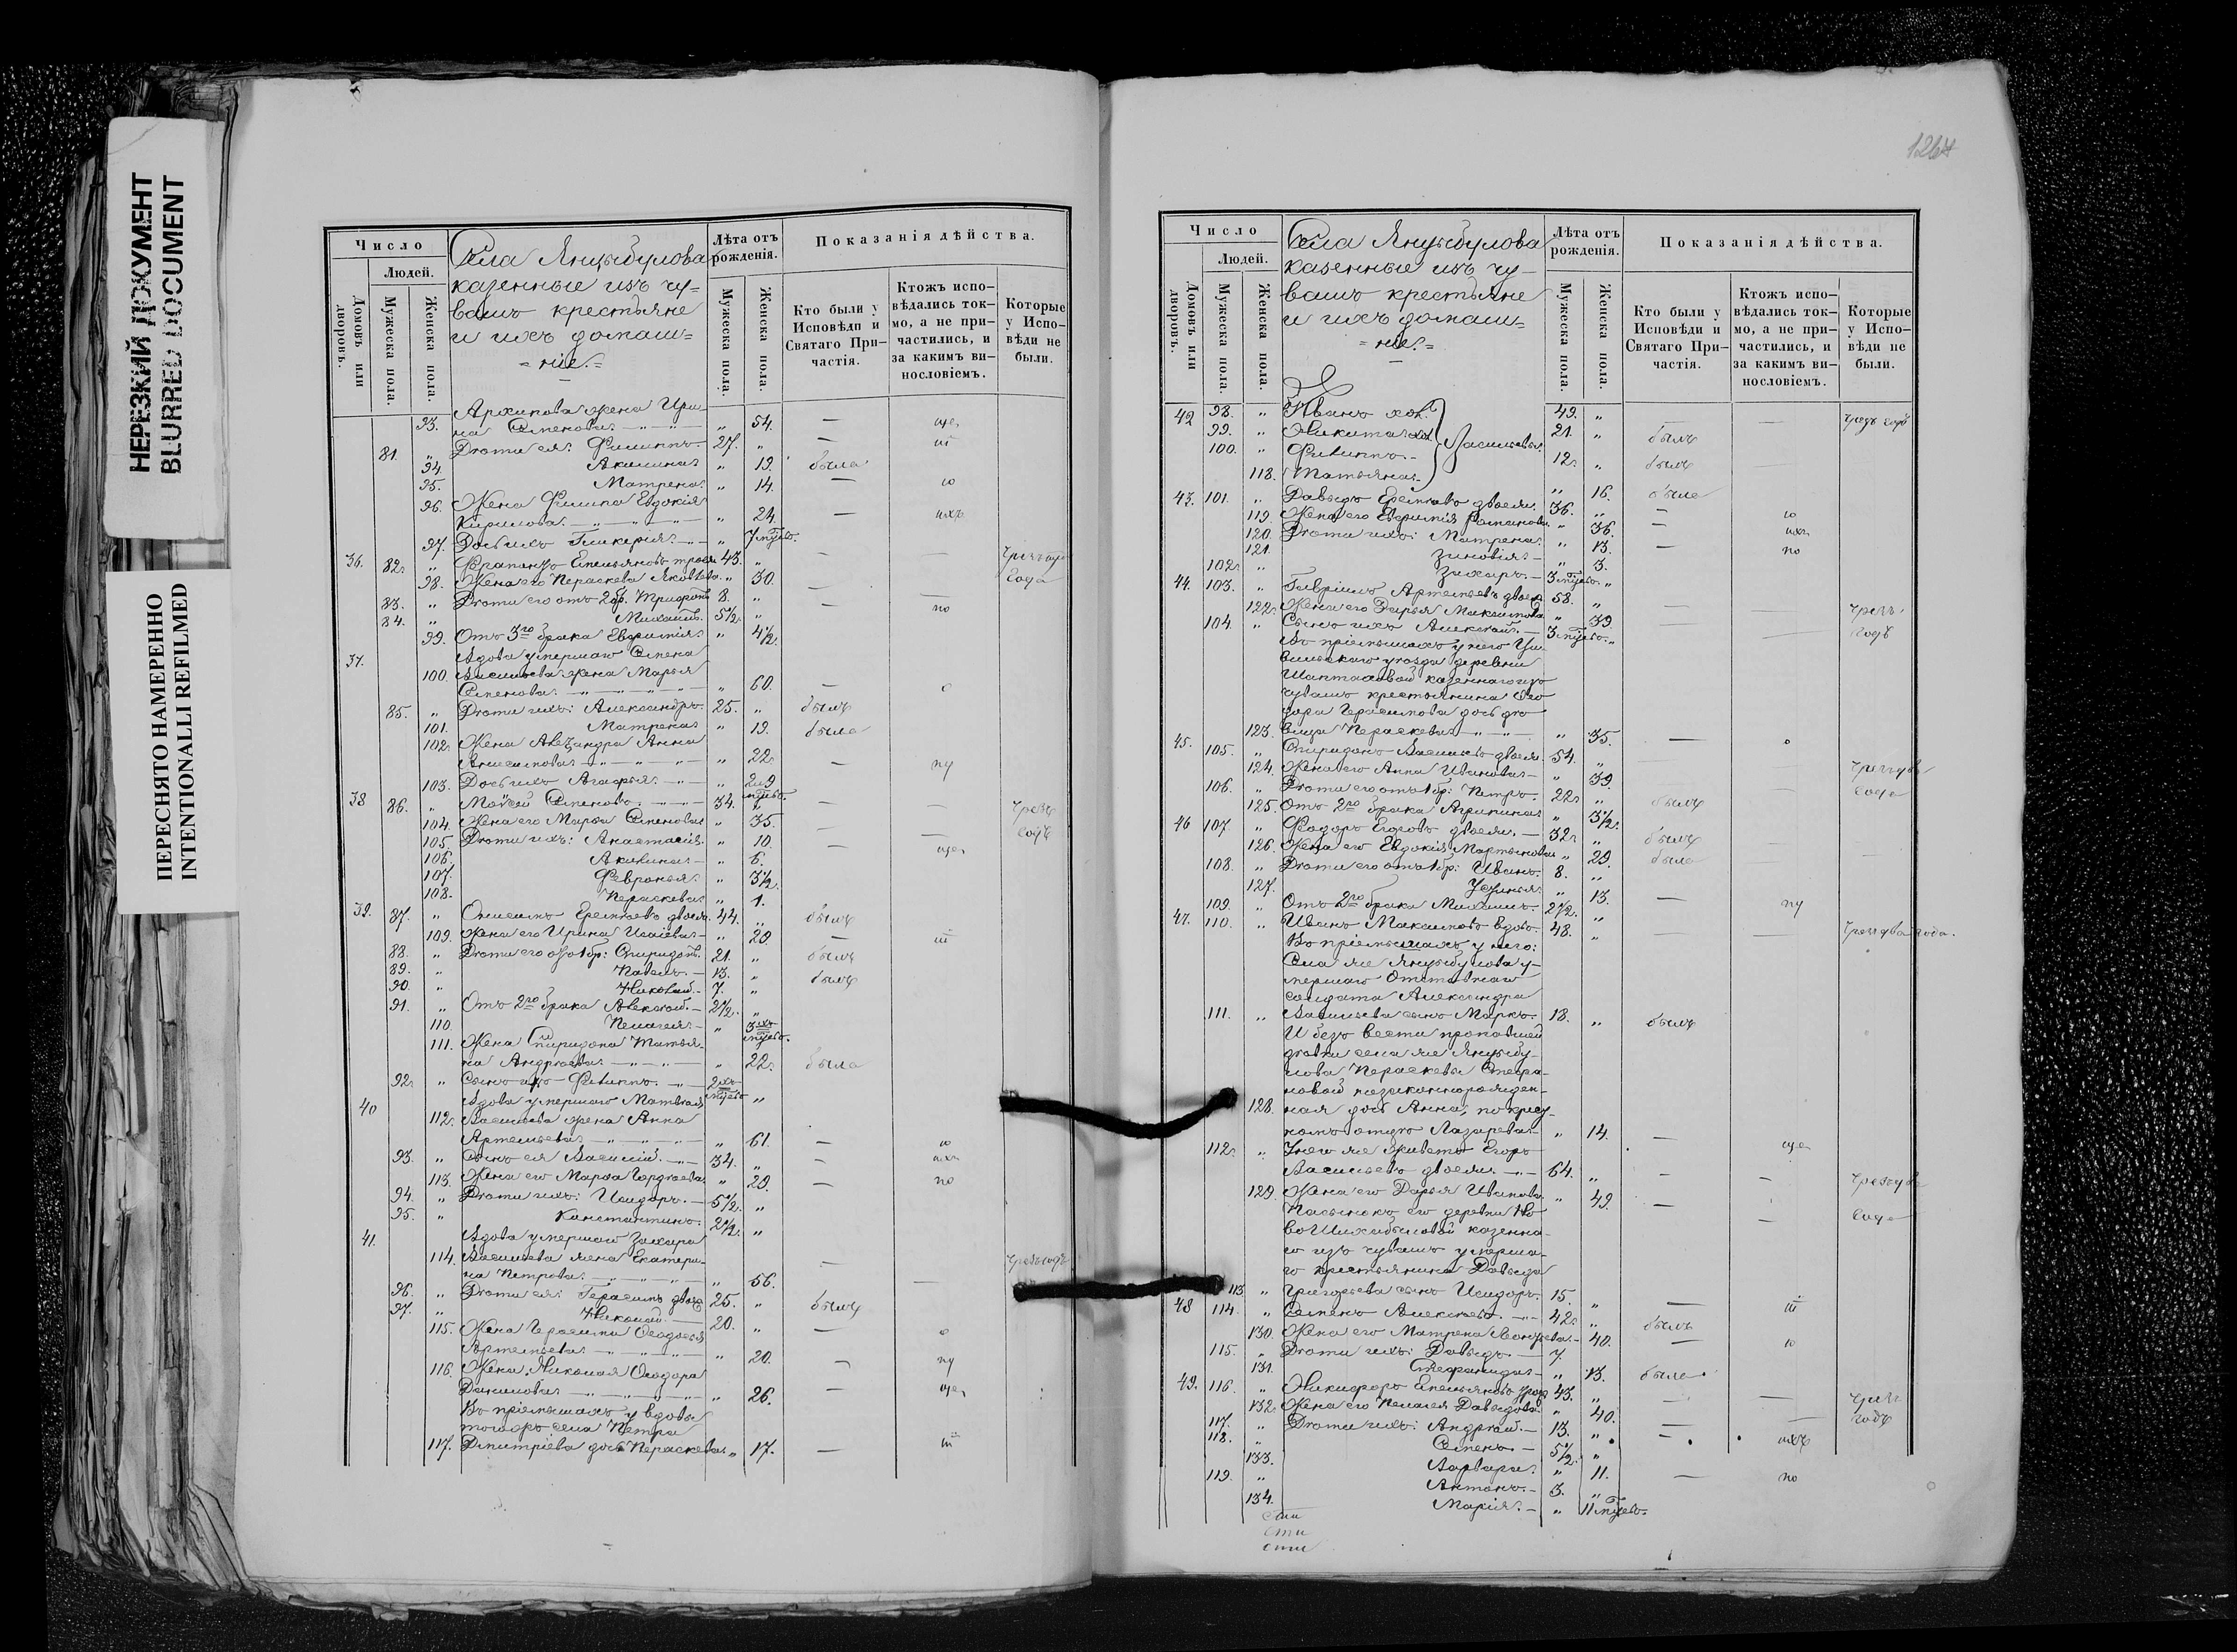 НЕРЕЗКИЙ ДОКУМЕНТ
BLURRED DOCUMENT
ПЕРЕСНЯТО НАМЕРЕННО
INTENTIONALLI REFILMED
Число
Людей.
Домовъ или дворовъ.
Мужеска пола.
Женска пола.
Села Янцыбулова
казенные изъ чу=
вашъ крестьяне
и ихъ домаш=
=ніе.=
Лѣта отъ рожденія.
Мужеска пола.
Женска пола.
Показанія дѣйства.
Кто были у Исповѣди и Святаго Причастія.
Ктожъ исповѣдались токмо, а не причастились, и за какимъ винословіемъ.
Которые у Исповѣди не были.
Архипова жена Ири-
93. на Семенова " 54. —
81. " Дѣти ея: Филиппъ. 27. " —
94. Акилина " 19. была
95. Матрена " 14. — ю
96. Жена Филипа Евдокія
Кирилова " 24. — ихъ
97. Дочь ихъ Гликерія "
36. 82. " Ферапонтъ Емельяновъ 43. " — —
98. Жена его Параскева Яковлева " 30. — — года
83. " Дѣти его отъ 2 бр. Трифонъ 8. "
84. " Михаилъ 5½ " — по
99. Отъ 3го брака Евфимія " 4½.
37. Вдова умершаго Семена
100. Васильева жена Марья
Семенова " 60. —
85. " Дѣти ихъ: Александръ. 25. " былъ
101. Матрена " 19. была
102. Жена Александра Анна
Анисимова " 22. — пу
103. Дочь ихъ Агафья "
38 86. " Мойсей Семеновъ. 34. " — — чрезъ
104. Жена его Марья Семенова " 35. — — годъ
105. Дѣти ихъ: Анастасія. " 10.
106. Акилина " 6.
107. Февронья. " 3½.
108. Параскева " 1.
39. 87. " Онисимъ Еремѣевъ двоеж. 44. " былъ
109. Жена его Ирина Исаіева " 29. —
88. " Дѣти его отъ 1 бр: Спиридонъ. 21. " былъ
89. " Павелъ. 13. " былъ
90. " Николай. 7. "
91. " Отъ 2го брака Алексѣй. 2½. "
110. Пелагея "
111. Жена Спиридона Татья-
на Андреева " 22. была
92. " Сынъ ихъ Филиппъ. "
40 Вдова умершаго Матвея
112. Васильева жена Анна
Артемьева " 61. — ю
93. " Сынъ ея Василій. 34. " — ихъ
113. Жена его Марѳа Гордѣева " 29. — по
94. " Дѣти ихъ: Исидоръ. 5½. "
95. " Константинъ. 2½. "
41. Вдова умершаго Захара
114. Васильева жена Екатери- — чрезъ годъ
на Петрова " 56. —
96. " Дѣти ея: Герасимъ 25. "
97. " Николай. 20. " былъ
115. Жена Герасима Ѳедосья
Артемьева " 20. —
116. Жена Николая Ѳеодора
Данилова " 26. —
Въ пріемышахъ у вдовы
тогоже села Петра
117. Димитріева дочь Параскева " 17. —
Число
Людей.
Домовъ или дворовъ.
Мужеска пола.
Женска пола.
Села Янцыбулова
казенные изъ чу-
вашъ крестьяне
и ихъ домаш=
=ніе.=
Лѣта отъ рожденія.
Мужеска пола.
Женска пола.
Показанія дѣйства.
Кто были у Исповѣди и Святаго Причастія.
Ктожъ исповѣдались токмо, а не причастились, и за какимъ винословіемъ.
Которые у Исповѣди не были.
42 98. " Иванъ хол. 49. " — —
99. " Никита хол. Васильевы 21. " былъ
100. " Филиппъ 12. " былъ
118. Татьяна " 16. была
43. 101. " Давыдъ Еремѣевъ двоеж. 36. " — ю
119. Жена его Евфимія Романова " 36. — ихъ
120. Дѣти ихъ: Матрена " 13. — по
121. Зиновія " 3.
102. " Захаръ. "
44. 103. " Гавріилъ Артемьевъ 58. " — —
122. Жена его Дарья Максимова " 39. — — годъ
104. " Сынъ ихъ Алексѣй. "
Въ пріемышахъ у него Ци-
вильскаго уѣзда деревни
казеннаго изъ
чувашъ крестьянина Ѳео-
дора Герасимова дочь дѣ-
123. вица Параскева " 35. —
45. 105. " Спиридонъ Васильевъ двоеж. 54. " — —
124. Жена его Анна Иванова " 39. — — года
106. " Дѣти его отъ 1 бр: Петръ. 22. " былъ
125. Отъ 2го брака Агрипина " 3½.
46 107. " Ѳедоръ Егоровъ двоеж. 32. " былъ
126. Жена его Евдокія Мартынова " 29. была
108. " Дѣти его отъ 1 бр: Иванъ. 8. "
127. Устинья " 13. — пу
109. " Отъ 2го брака Михаилъ. 2½. "
47. 110. " Иванъ Максимовъ вдовъ. 48. " — — чрезъ два года.
Въ пріемышахъ у него:
Села же Янцыбулова у-
мершаго отставнаго
солдата Александра
111. " Васильева сынъ Марко. 18. " былъ
И безъ вести пропавшей
дѣвки села же Янцыбу-
лова Параскевы Стефа-
новой незаконнорожден-
128. ная дочь Анна, по крес-
ному отцу Лазарева " 14. —
112. " У него же живетъ Егоръ
Васильевъ двоеж. 64. " — —
129. Жена его Дарья Иванова " 49. — — года
Пасынокъ его деревни Но-
казенна-
го изъ чувашъ умерша-
го крестьянина Давыда
113 " Григорьева сынъ Исидоръ. 15. " —
48 114. " Семенъ Алексѣевъ. 42. " былъ
130. Жена его Матрена Леонтьева 40. — ю
115. " Дѣти ихъ: Давыдъ 7.
131. Стефанида " 13. была
49. 116. " Никифоръ Емельяновъ 43. " — —
132. Жена его Пелагея Давыдова " 40. — — годъ
117. " Дѣти ихъ: Андрей. 13. " — ихъ
118. " Семенъ. 5½. "
133. Варвара. " 11. — по
119. " Антонъ. 3. "
134. Марія. "